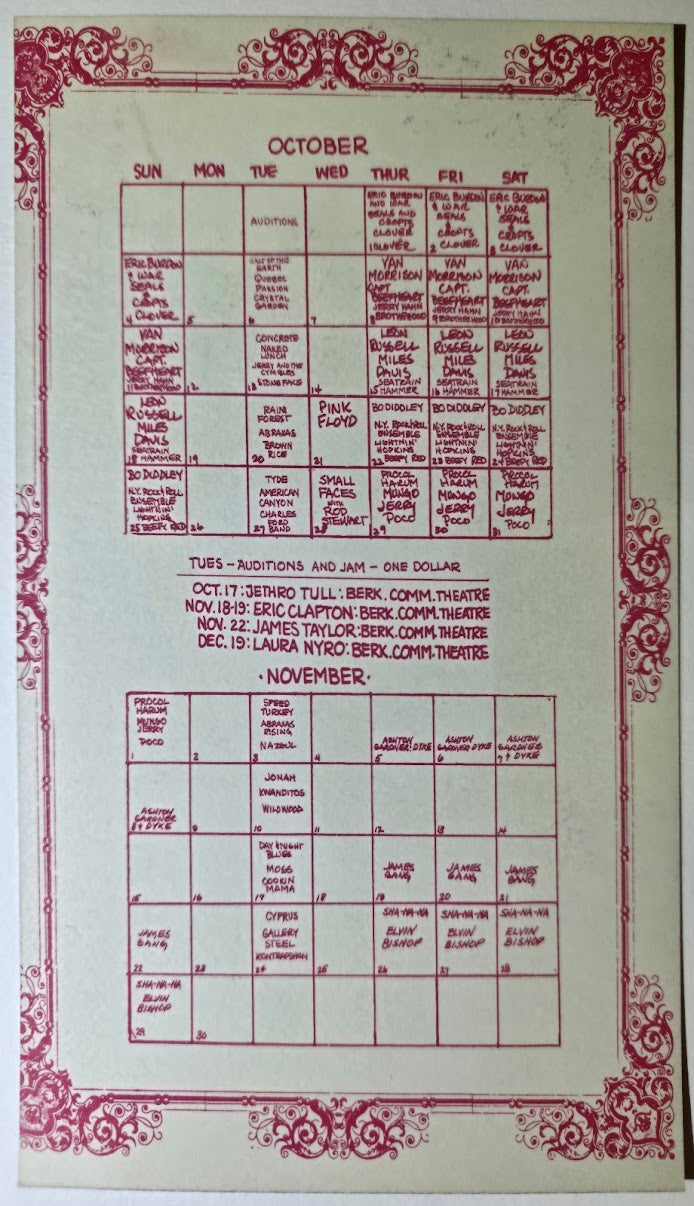 OCTOBER
SUN MON TUE WED THUR FRI SAT
AUDITIONS
ERIC BURDON
AND WAR
SEALS AND
CROFTS
CLOVER
1
ERIC BURDON
& WAR
SEALS
& CROFTS
2 CLOVER
ERIC BURDON
& WAR
SEALS
& CROFTS
3 CLOVER
ERIC BURDON
& WAR
SEALS
& CROFTS
4 CLOVER
5
SALT OF THE
EARTH
QUEBEC
PASSION
CRYSTAL
GARDEN
6
7
VAN
MORRISON
CAPT
BEEFHEART
JERRY HAHN
8 BROTHERHOOD
VAN
MORRISON
CAPT.
BEEFHEART
JERRY HAHN
9 BROTHERHOOD
VAN
MORRISON
CAPT.
BEEFHEART
JERRY HAHN
10 BROTHERHOOD
VAN
MORRISON
CAPT.
BEEFHEART
JERRY HAHN
11 BROTHERHOOD
12
CONCRETE
NAKED
LUNCH
JERRY AND THE
CYMBLES
13 STONE FACE
14
LEON
RUSSELL
MILES
DAVIS
SEATRAIN
15 HAMMER
LEON
RUSSELL
MILES
DAVIS
SEATRAIN
16 HAMMER
LEON
RUSSELL
MILES
DAVIS
SEATRAIN
17 HAMMER
LEON
RUSSELL
MILES
DAVIS
SEATRAIN
18 HAMMER
19
RAIN
FOREST
ABRAXAS
BROWN
20 RICE
PINK
FLOYD
21
BO DIDDLEY
N.Y. ROCK & ROLL
ENSEMBLE
LIGHTNIN'
HOPKINS
22 BEEFY RED
BO DIDDLEY
N.Y. ROCK & ROLL
ENSEMBLE
LIGHTNIN'
HOPKINS
23 BEEFY RED
BO DIDDLEY
N.Y. ROCK & ROLL
ENSEMBLE
LIGHTNIN'
HOPKINS
24 BEEFY RED
BO DIDDLEY
N.Y. ROCK & ROLL
ENSEMBLE
LIGHTNIN'
HOPKINS
25 BEEFY RED
26
TYDE
AMERICAN
CANYON
CHARLES
FORD
27 BAND
SMALL
FACES
WITH
ROD
STEWART
28
PROCOL
HARUM
MUNGO
JERRY
POCO
29
PROCOL
HARUM
MUNGO
JERRY
POCO
30
PROCOL
HARUM
MUNGO
JERRY
POCO
31
TUES – AUDITIONS AND JAM – ONE DOLLAR
OCT. 17: JETHRO TULL: BERK. COMM. THEATRE
NOV. 18-19: ERIC CLAPTON: BERK. COMM. THEATRE
NOV. 22: JAMES TAYLOR: BERK. COMM. THEATRE
DEC. 19: LAURA NYRO: BERK. COMM. THEATRE
· NOVEMBER ·
PROCOL
HARUM
MUNGO
JERRY
POCO
1
2
SPEED
TURKEY
ABRAXAS
RISING
NAZGUL
3
4
ASHTON
GARDNER & DYKE
5
ASHTON
GARDNER DYKE
6
ASHTON
GARDNER
7 & DYKE
ASHTON
GARDNER
8 & DYKE
9
JONAH
KWANDITOS
WILDWOOD
10
11
12
13
14
15
16
DAY & NIGHT
BLUES
MOSS
COOKIN
MAMA
17
18
JAMES
GANG
19
JAMES
GANG
20
JAMES
GANG
21
JAMES
GANG
22
23
CYPRUS
GALLERY
STEEL
KONTRAPSHUN
24
25
SHA-NA-NA
ELVIN
BISHOP
26
SHA-NA-NA
ELVIN
BISHOP
27
SHA-NA-NA
ELVIN
BISHOP
28
SHA-NA-NA
ELVIN
BISHOP
29
30